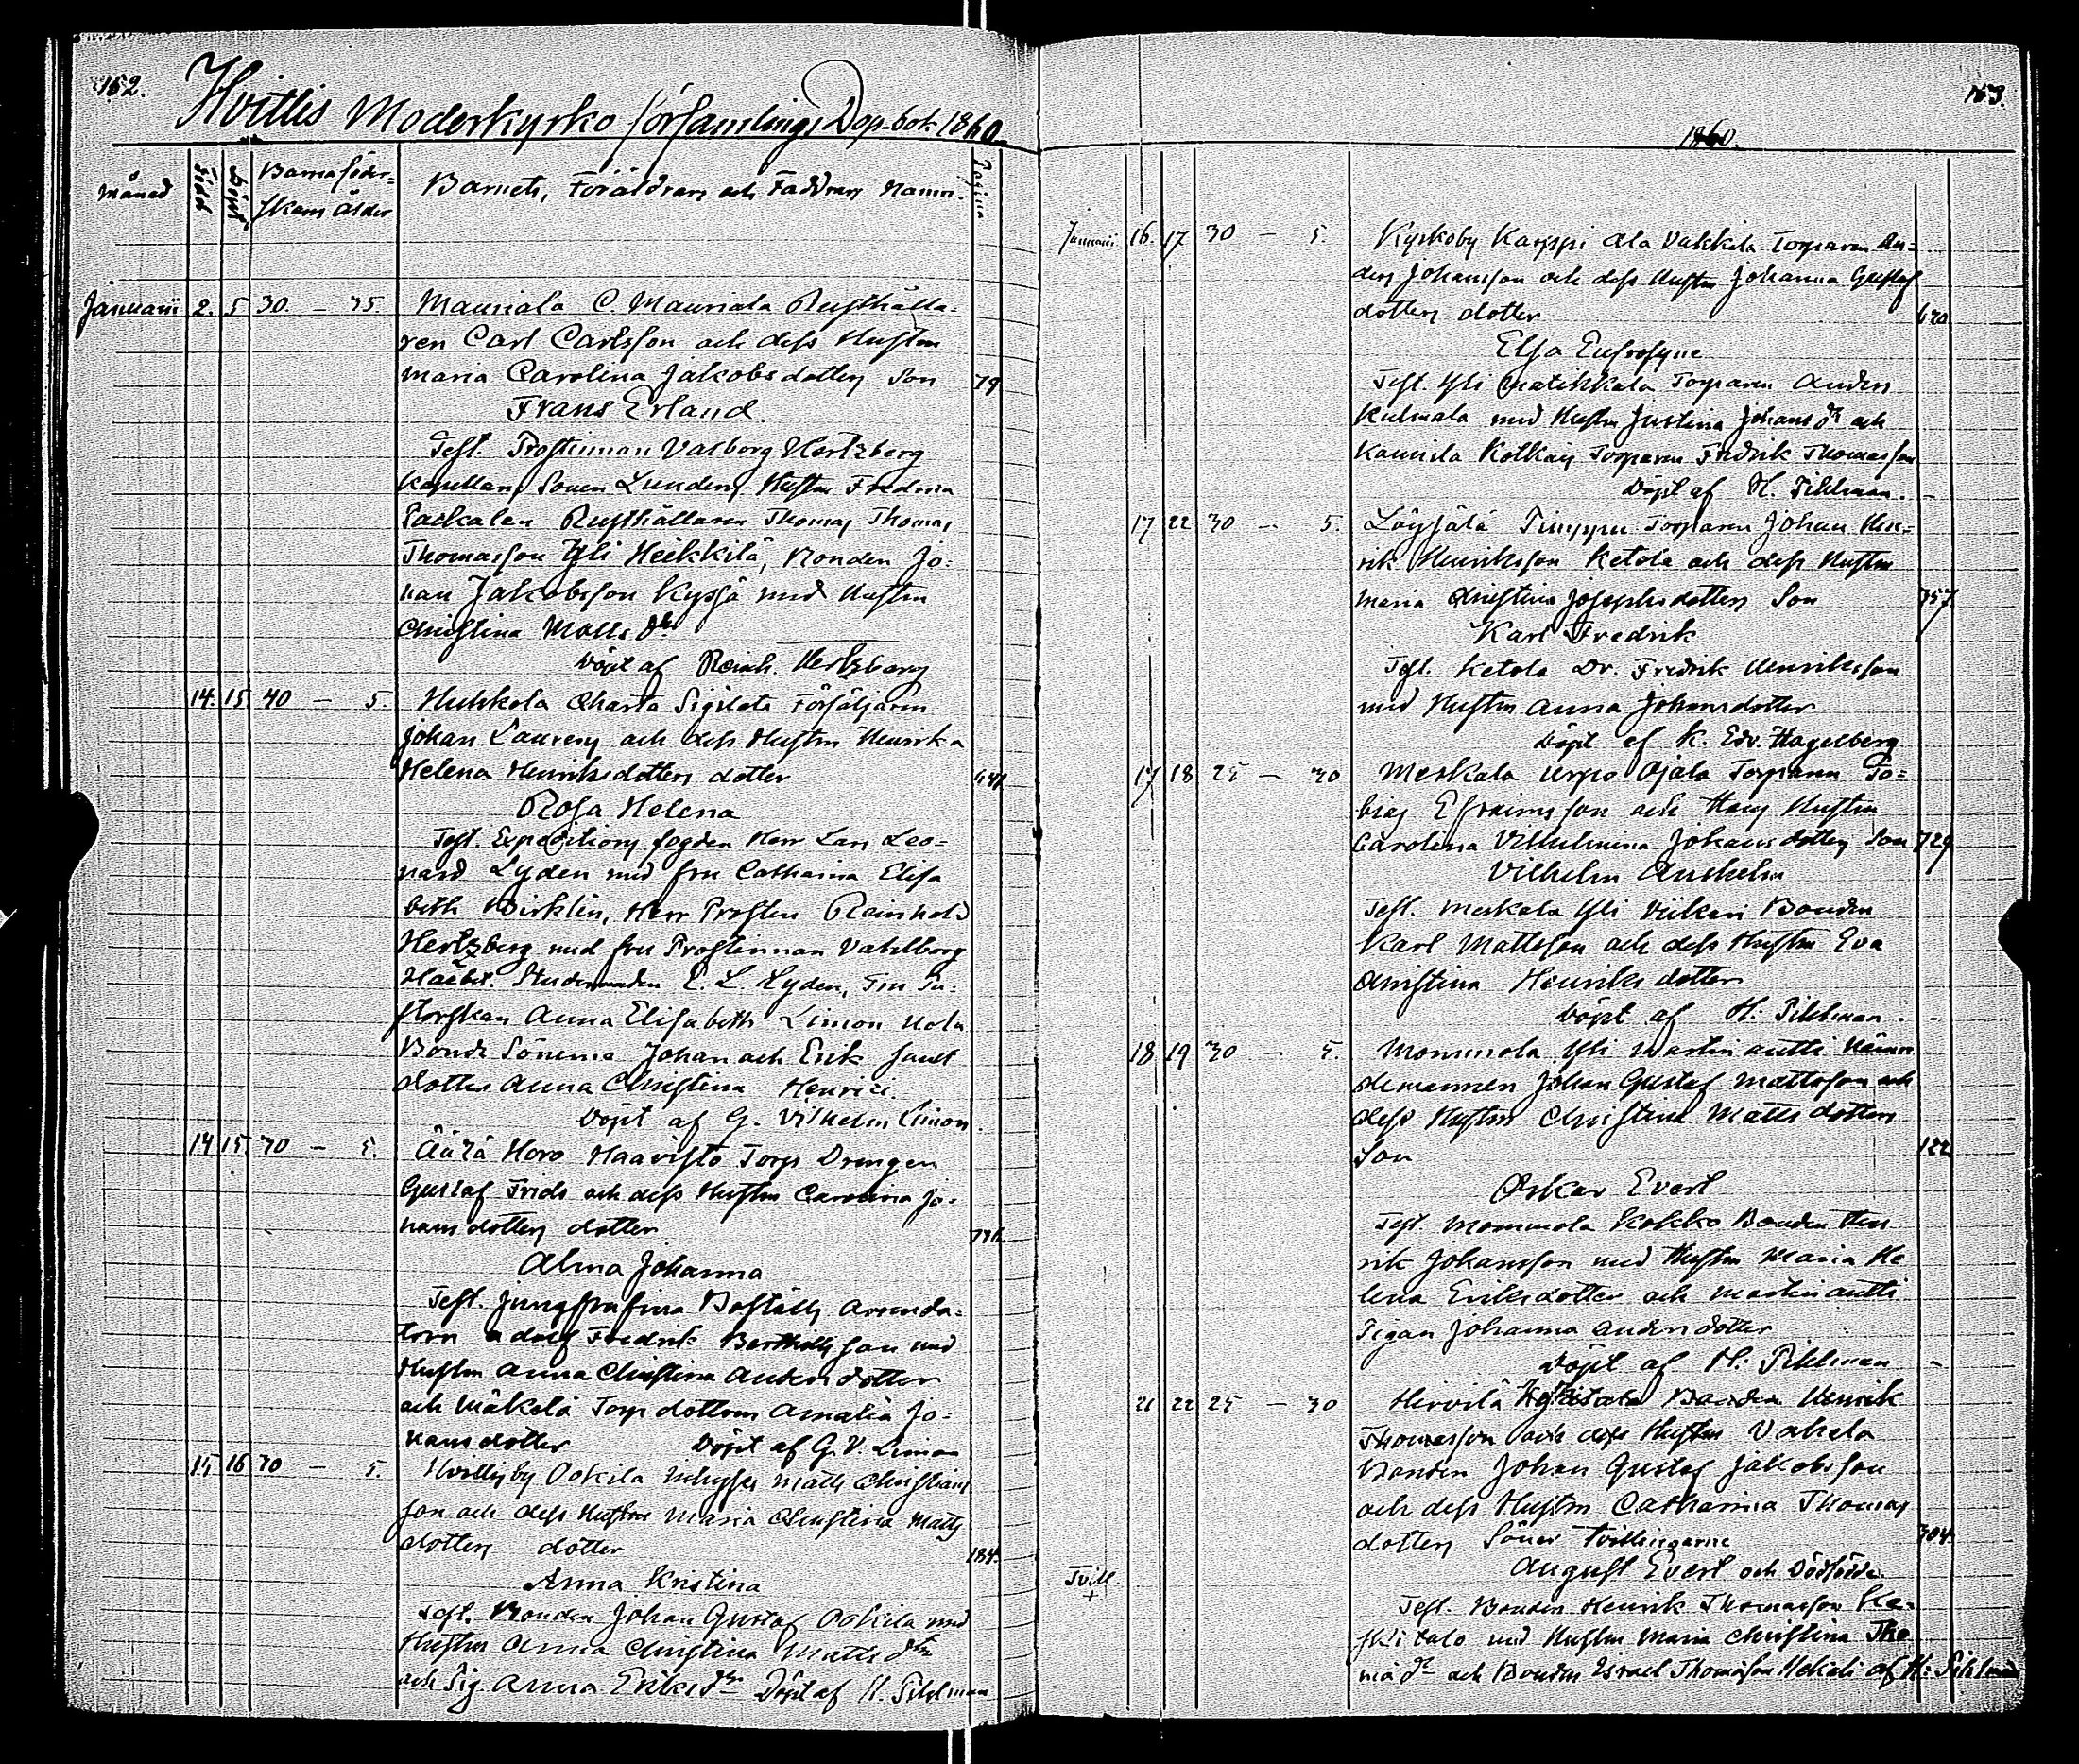 152.
Hvittis Moderkyrko församlings Dop-bok 1860.
månad Född Döpt Barnaföder=
skans ålder
Barnets, Föräldrars och Faddrars Namn. Pagina
Januarii 2. 5 30. – 35. Mauriala C. Mauriala Rusthålla=
ren Carl Carlsson och dess Hustru
Maria Carolina Jakobsdotters Son 79
Frans Erland
Test. Prostinnan Valborg Hertzberg
Kapellans Sonen Lundens Hustru Fredrica
Rusthållaren Thomas Thomas
Thomasson Yli Heikkilä, Bonden Jo=
han Jakobsson Kypjä med Hustru
Christina Matts dr
Döpt af Reinh. Hertzberg
14. 15 40 – 5. Huhkola Charta Sigilata Försäljaren
Johan Laurens och dess Hustru Henrika
Helena Henriksdotters dotter
Rosa Helena
Test. Expeditions fogden Herr Lars Leo=
nard Lyden med fru Catharina Elisa
beth Wirklin, Herr Prosten Rainhold
Hertzberg med fru Prostinnan Vahlborg
Studeranden E. L. Lyden, Fru Pa=
storskan Anna Elisabeth Limon
Bonde Sönerna Johan och Erik samt
dotter Anna Christina Henrici.
Döpt af G. Vilhelm Limon.
14 15. 30 – 5. Äärä Horo Haavisto Torp Drengen
Gustaf Frids och dess Hustru Carolina Jo=
hans dotters dotter
Alma Johanna
Test. Jungfrufinna Boställs Arrenda=
torn Adolf Fredrik Berthollsson med
Hustru Anna Christina Andersdotter
och Mäkelä Torp dottern Amalia Jo=
hansdotter Döpt af G. V. Limon
15 16 30 – 5. Hvittisby Ookila Inhyses Matts Christians
son och dess Hustru Maria Christina Matts
dotters dotter 184.
Anna Kristina
Test. Bonden Johan Gustaf Ookila med
Hustru Anna Christina Matts dtr
och Pig. Anna Eriksdr Döpt af H. Pihlman
153.
1860.
Januarii 16. 17 30 – 5. Kyrkoby Karppi Ala Vakkila Torparen An=
ders Johansson och dess Hustru Johanna Gustaf
dotters dotter 620
Elsa Eufrosyne
Test. Yli Matikkala Torparen Anders
Kulmala med Hustru Justina Johans dr och
Kaurila Kotkais Torparen Fredrik Thomasson
Döpt af H. Pihlman. –
17 22 30 – 5. Löysälä Pimppu Torparen Johan Hen=
rik Henriksson Ketola och dess Hustru
Maria Christina Josephsdotters Son 357
Karl Fredrik
Test. Ketola Dr. Fredrik Henriksson
med Hustru Anna Johansdotter
Döpt af K. Edv. Hagelberg
17 18 25 – 30 Meskala Urpo Ojala Torparen To=
bias Efraimsson och Hans Hustru
Carolina Vilhelmina Johansdotters Son 729
Vilhelm Anshelm
Test. Meskala Yli Viikari Bonden
Karl Mattsson och dess Hustru Eva
Christina Henriks dotter
Döpt af H: Pihlman. –
18 19 30 – 5. Mommola Yli Martin antti Nämn
demannen Johan Gustaf Mattsson och
dess Hustru Christina Matts dotters
Son 122
Oskar Evert
Test. Mommola Kokko Bonden Hen
rik Johansson med Hustru Maria He
lena Eriksdotter och Martin antti
Pigan Johanna Anders dotter
Döpt af H: Pihlman –
21 22 25 – 30 Hirvilä Keskitalo Bonden Henrik
Thomasson och dess Hustru Vahala
Bonden Johan Gustaf Jakobsson
och dess Hustru Catharina Thomas
dotters Söner tvillingarne 304.
Tvill. August Evert och Dödfödde
+
Test. Bonden Henrik Thomasson Ke=
skitalo med Hustru Maria Christina Tho
mä dr och Bonden Israel Thomasson af H: Pihlman